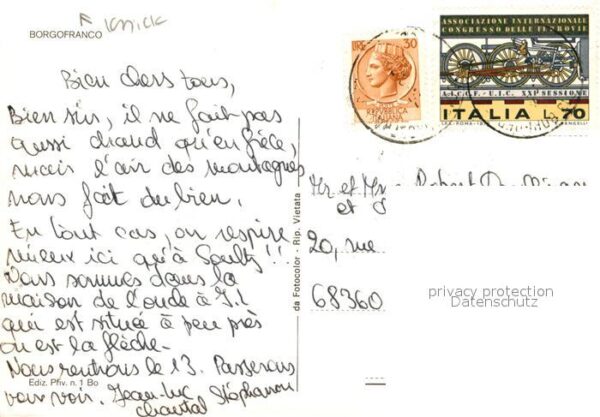 BORGOFRANCO
Knick
Bien chers tous,
Bien sûr, il ne fait pas
aussi chaud qu'en Grèce,
mais l'air des montagnes
nous fait du bien.
En tout cas, on respire
mieux ici qu'à Soultz !!
Nous sommes dans la
maison de l'oncle à J.L
qui est située à peu près
où est la flèche.
Nous rentrons le 13. Passerons
vous voir. Jean-Luc Stéphanie
Chantal
Ediz. Pfiv. n. 1 Bo
da Fotocolor - Rip. Vietata
LIRE 30
REPUBBLICA
ITALIANA
ASSOCIAZIONE INTERNAZIONALE
CONGRESSO DELLE FERROVIE
A.I.C.C.F. - U.I.C. XXI SESSIONE
ITALIA L.70
Mr et Mme Robert
et
20, rue
68360
privacy protection
Datenschutz